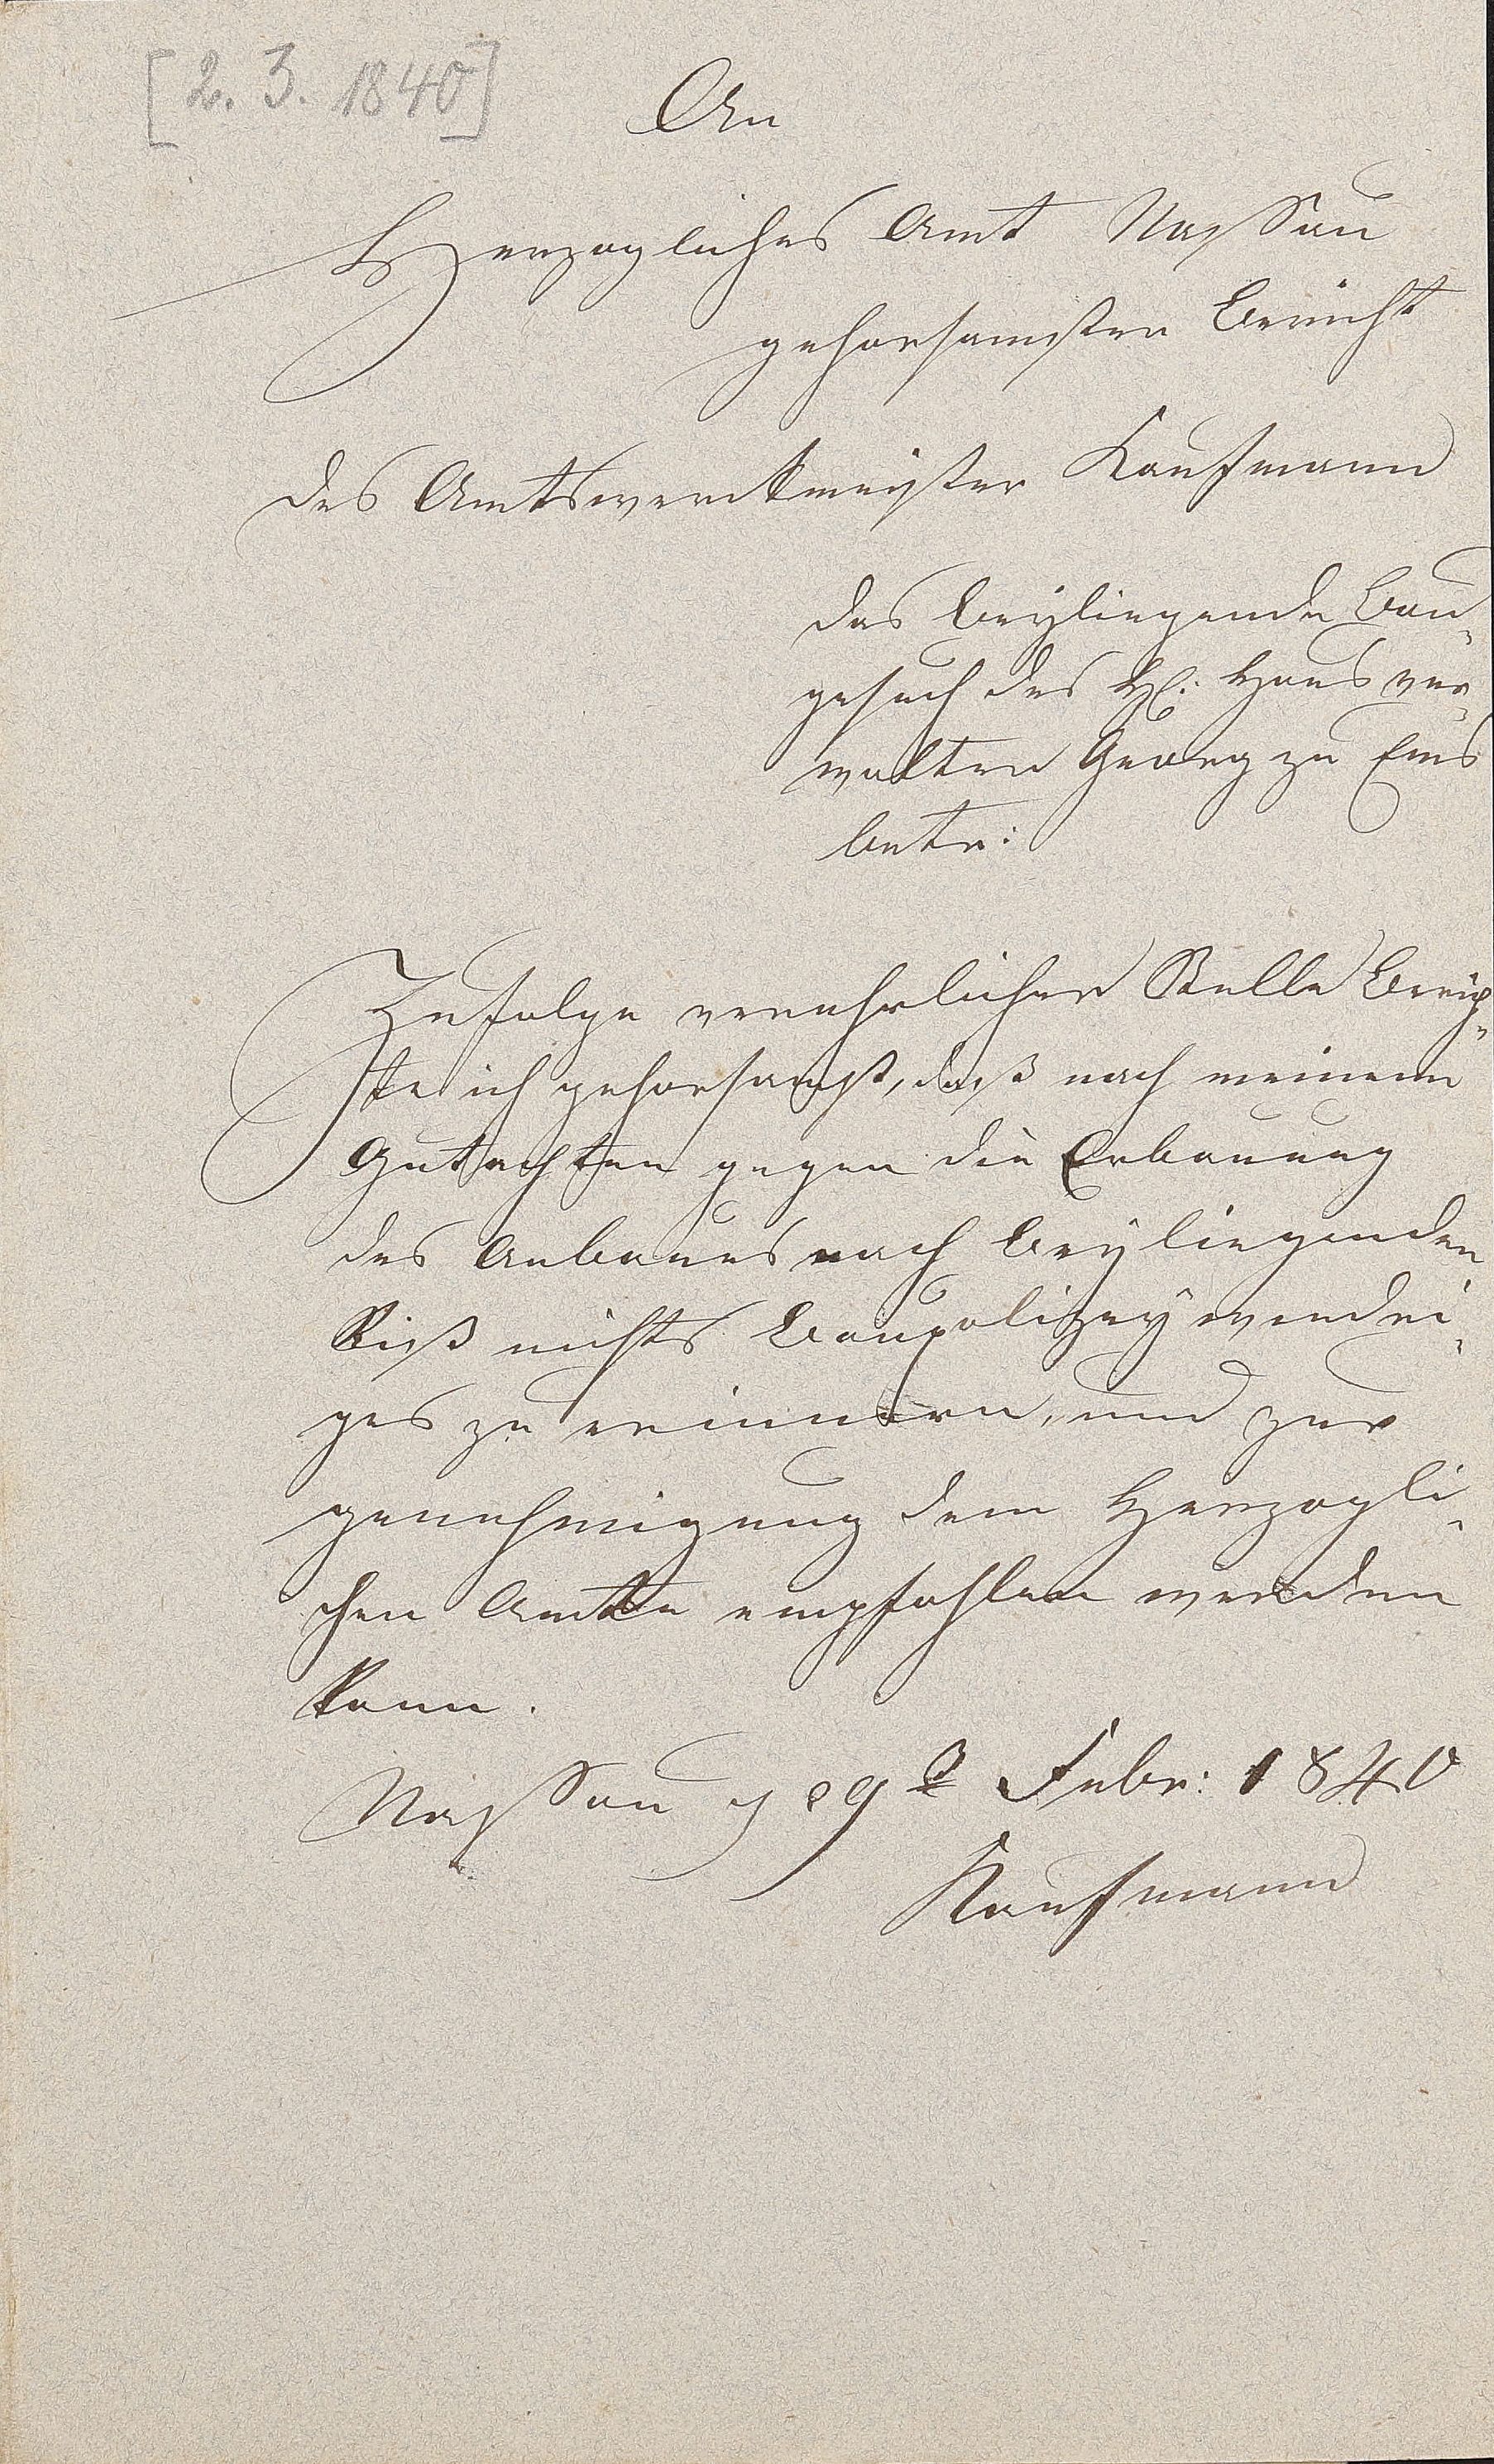 [2. 3. 1840]
An
Herzogliches Amt Nassau
gehorsamster Bericht
des Amtswerkmeister Kaufmann
das beyliegende Bau-
gesuch des H. Hausver-
walter Georg zu Ems
betr:
Zufolge verehrlicher Stelle Berich-
te ich gehorsamst, daß nach meinem
Gutachten gegen die Erbauung
des Anbaues nach Beyliegenden
Riß nichts Baupolizey wiedri-
ges zu erinnern, und zur
genehmigung dem Herzogli-
chen Amte empfohlen werden
kann.
Nassau 29 Febr: 1840
Kaufmann